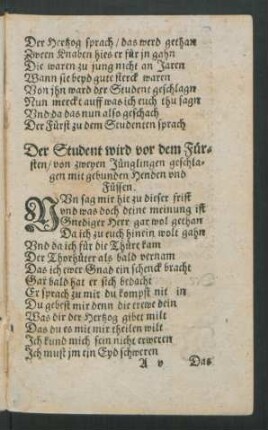 Der Hertzog sprach / das werd gethan
Zween Knaben hies er für jn gahn
Die waren zu jung nicht an Jaren
Wann sie beyd gute sterck waren
Von jhn ward der Student geschlagn
Nun merckt auff was ich euch thu sagn
Vnd da das nun also geschach
Der Fürst zu dem Studenten sprach
Der Student wird vor dem Für-
sten / von zweyen Jünglingen geschla-
gen mit gebunden Henden vnd
Füssen.
NVn sag mir hie zu dieser frist
vnd was doch deine meinung ist
Gnediger Herr gar wol gethan
Da ich zu euch hinein wolt gahn
Vnd da ich für die Thürt kam
Der Thorhüter als bald vernam
Das ich ewer Gnad ein schenck bracht
Gar bald hat er sich bedacht
Er sprach zu mir du kompst nit in
Du gebest mir denn die trewe dein
Was dir der Hertzog gibet milt
Das du es mit mir theilen wilt
Ich kund mich sein nicht erweren
Ich must jm ein Eyd schweren
A v Das